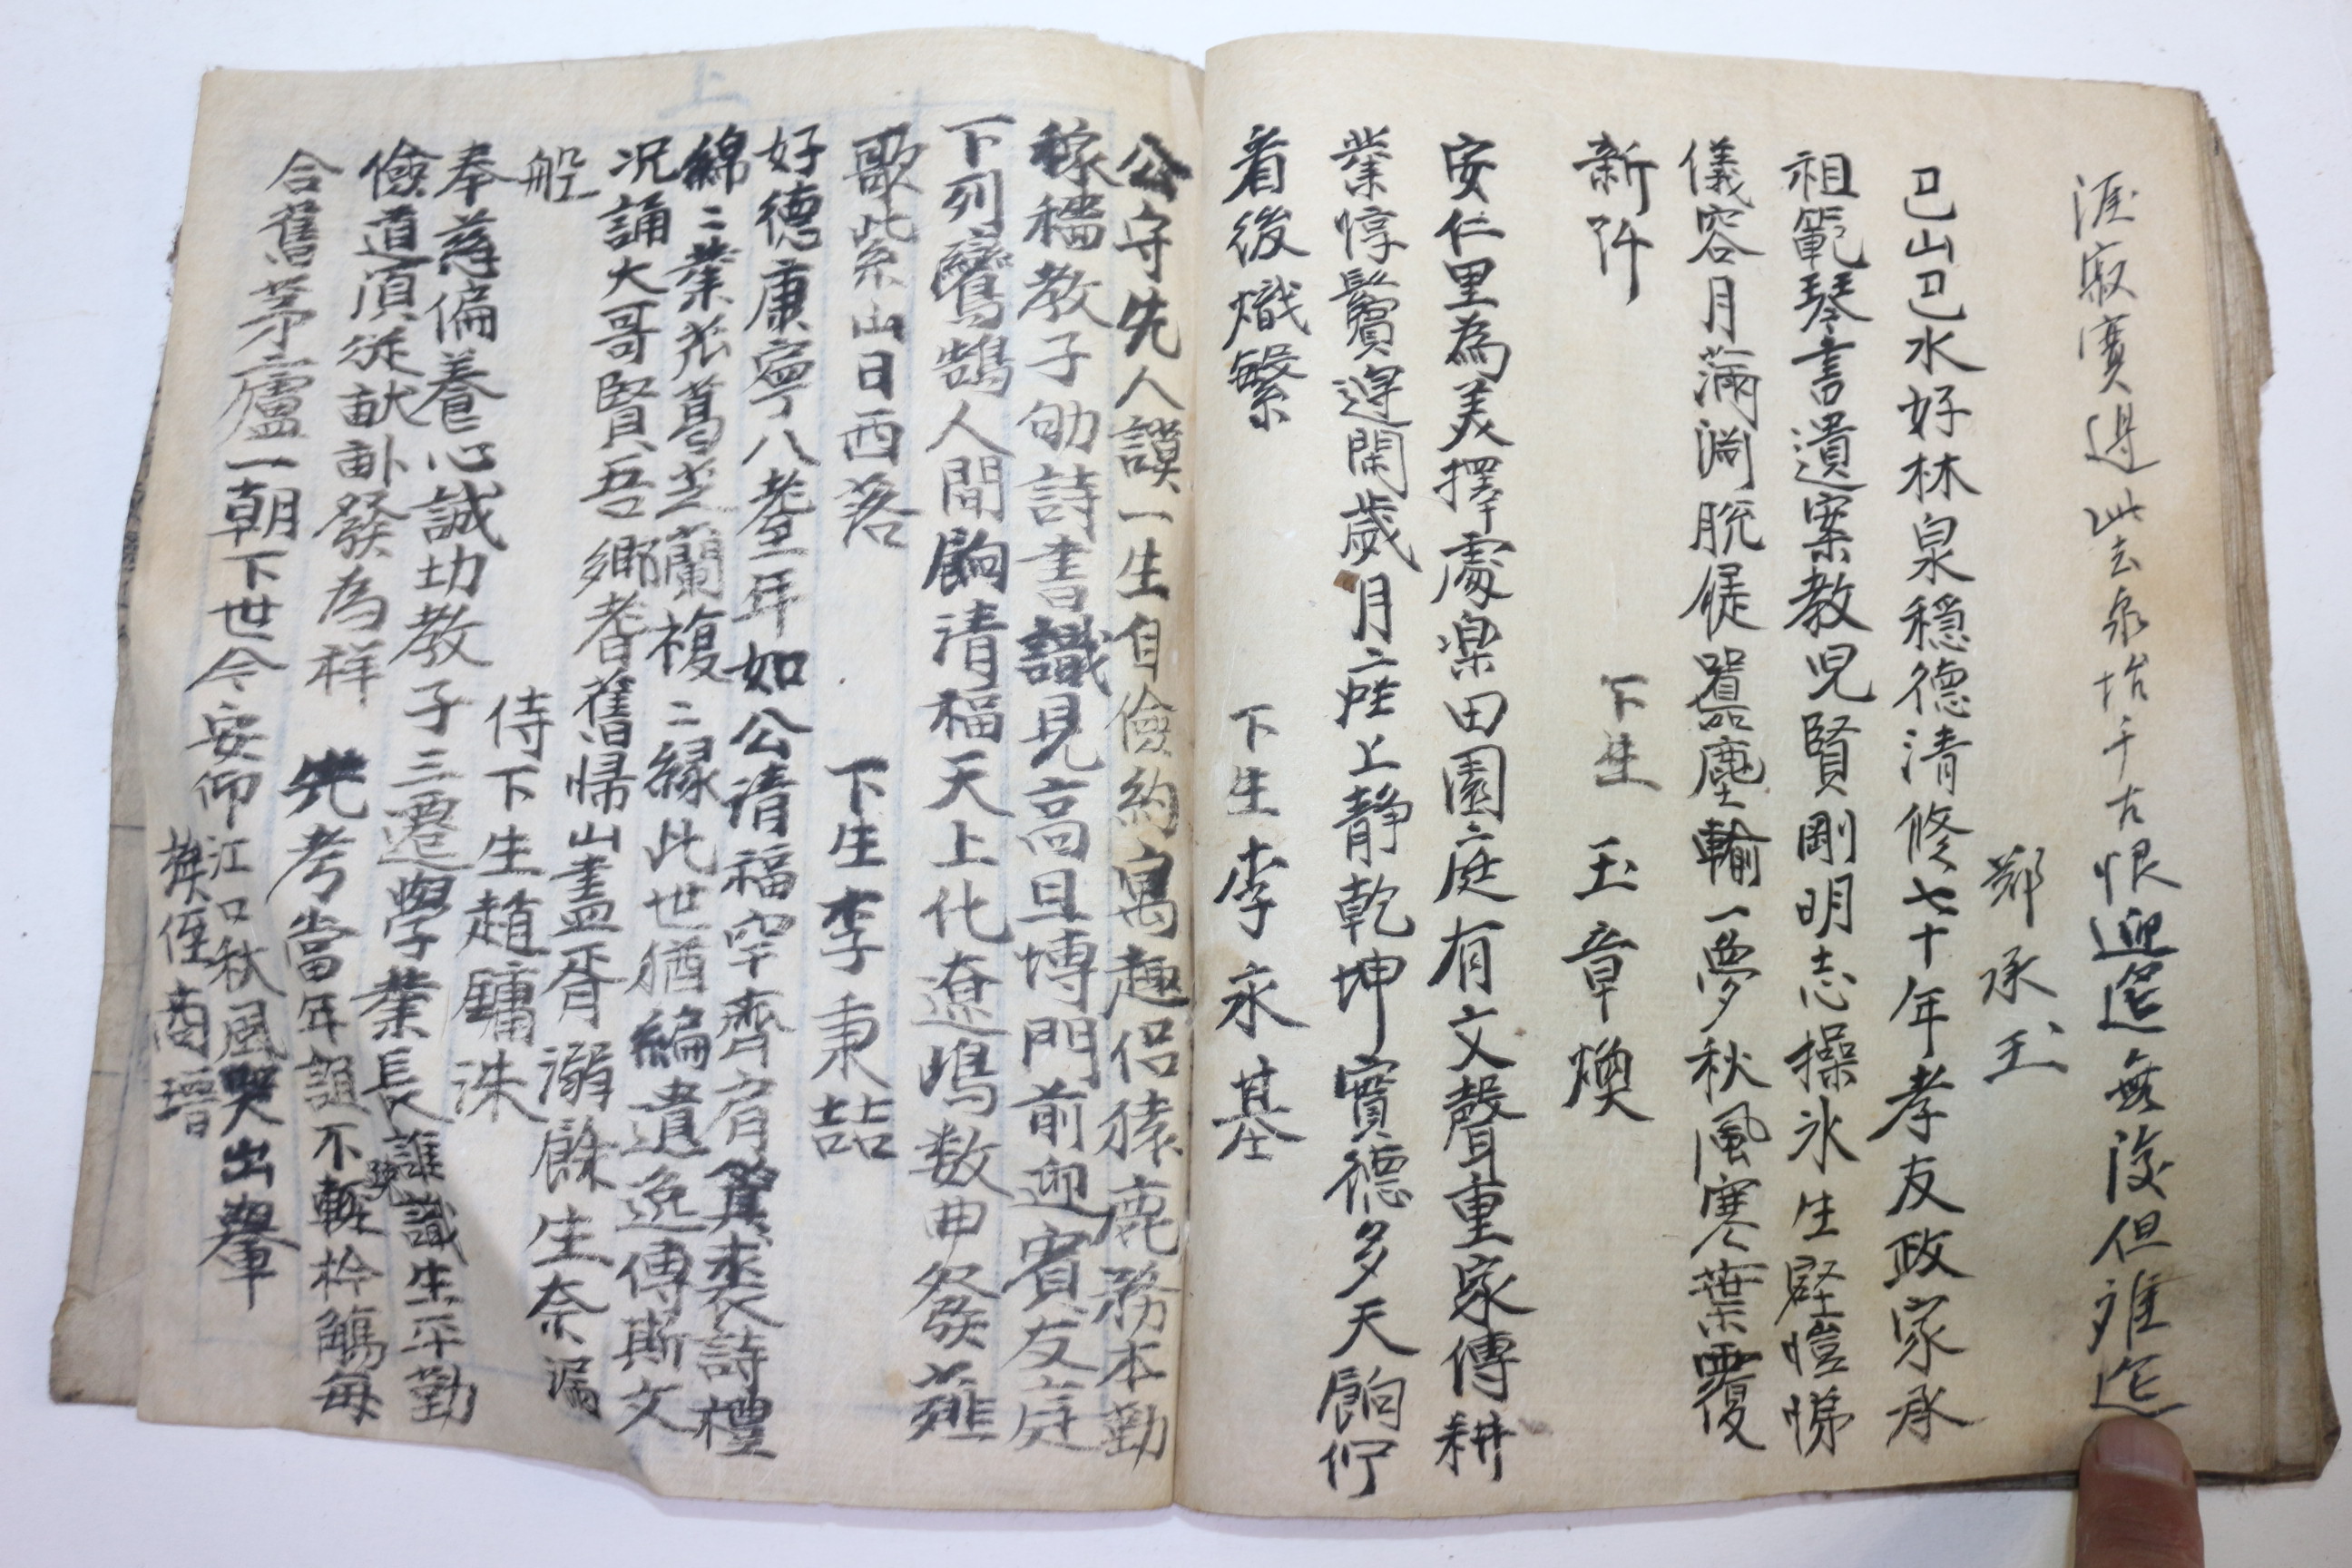 涯寂寞邊此去泉坮千古恨迎筵無後但難迮
鄭承玉
巳山巳水好林泉穩德清修七十年孝友政家承
祖範琴書遺案教児賢剛明志操氷生壑愷悌
儀容月滿淵脫屣囂塵輸一夢秋風寒葉覆
新阡
下生 玉章煥
安仁里為美擇處楽田園庭有文聲重家傳耕
業惇鬢邊閑歲月座上靜乾坤實德多天餉佇
看後熾繁
下生 李永基
公守先人謨一生自儉約寓趣侶猿鹿務本勤
稼穡教子劬詩書識見高且博門前迎賓友庭
下列鸞鵠人間餉清福天上化遼鳴数曲發薤
歌紫山日西落
下生李秉喆
好德康寧八耋年如公清福罕齊肩箕裘詩禮
綿〻業瓜葛芝蘭複〻緣此世猶編遺逸傳斯文
況誦大哥賢吾鄉耆舊帰山盡胥溺餘生奈漏
船
侍下生趙鏞洙
奉慈偏養心誠功教子三遷學業長誰識生平勤
儉道頂從畎畝發為祥
先考當年誼不輕衿觴每
合舊茅廬一朝下世今安仰江口秋風哭出轝
族侄商增